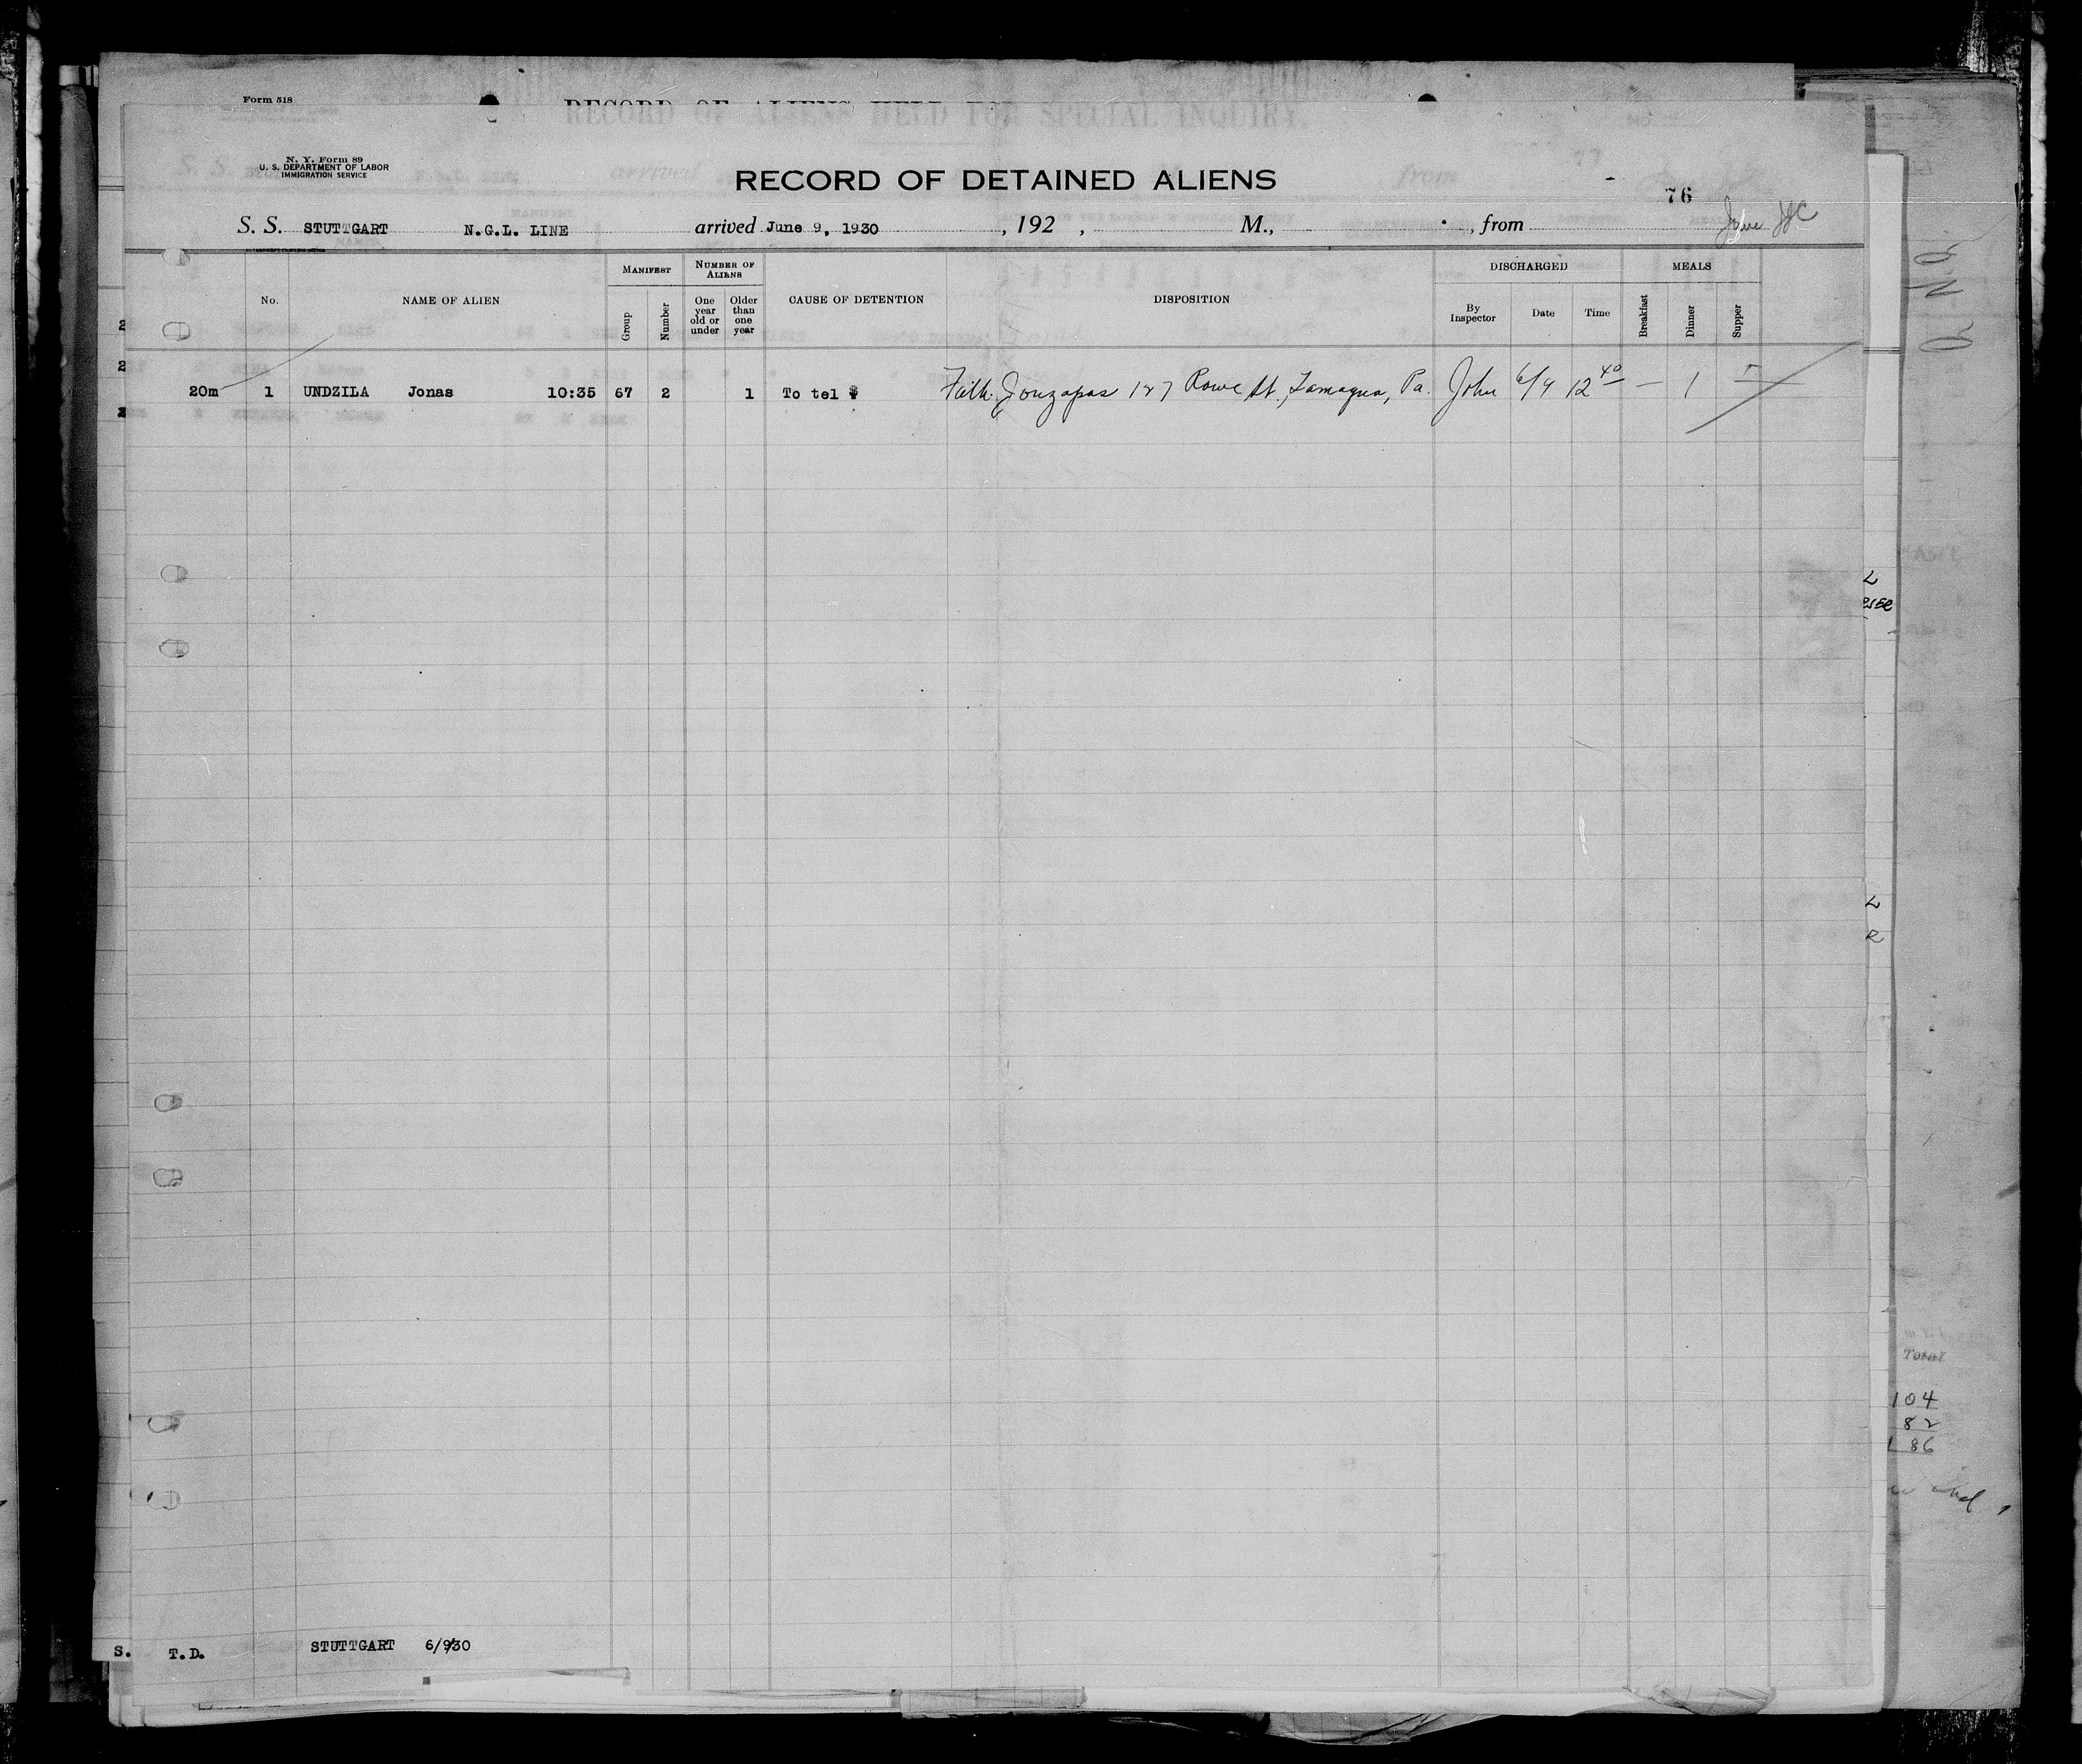 Form 518
RECORD OF ALIENS HELD FOR SPECIAL INQUIRY.
N. Y. Form 89
U. S. DEPARTMENT OF LABOR
IMMIGRATION SERVICE
RECORD OF DETAINED ALIENS
76
S. S. STUTTGART N.G.L. LINE arrived June 9, 1930 , 192 , M., , from
MANIFEST NUMBER OF ALIENS DISCHARGED MEALS
No. NAME OF ALIEN Group Number One year old or under Older than one year CAUSE OF DETENTION DISPOSITION By Inspector Date Time Breakfast Dinner Supper
20m 1 UNDZILA Jonas 10:35 67 2 1 To tel $ Fath. Jonzapas 187 Rowe St., Tamaqua, Pa. John 6/9 12 40 — 1
Total
104
82
86
S. T.D. STUTTGART 6/9/30